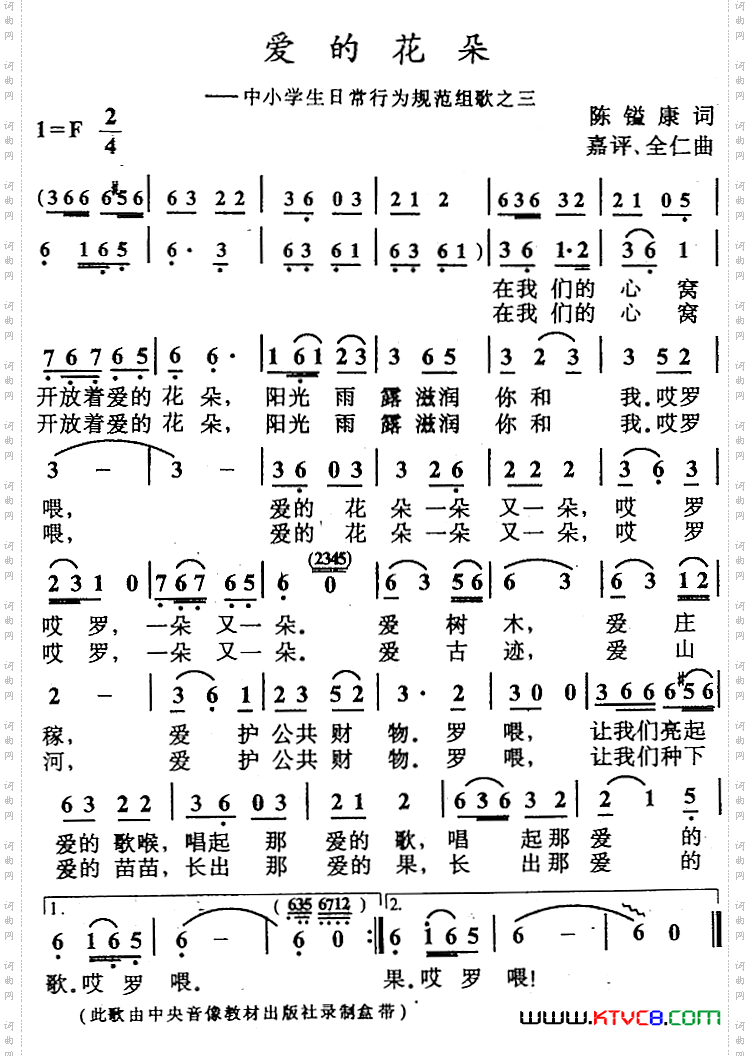 爱的花朵
——中小学生日常行为规范组歌之三
1=F 2/4
陈镒康 词
嘉评、全仁曲
(366 656 | 63 22 | 36 03 | 21 2 | 636 32 | 21 05 |
6 165 | 6· 3 | 63 61 | 63 61) | 36 1·2 | 36 1
在我 们的 心 窝
在我 们的 心 窝
767 65 | 6 6· | 161 23 | 3 65 | 3 23 | 3 52
开放着爱的 花 朵, 阳光 雨 露 滋润 你 和 我.哎罗
开放着爱的 花 朵, 阳光 雨 露 滋润 你 和 我.哎罗
3 - | 3 - | 36 03 | 3 26 | 22 2 | 36 3
喂, 爱的 花 朵 一朵 又一 朵, 哎 罗
喂, 爱的 花 朵 一朵 又一 朵, 哎 罗
(2345)
231 0 | 767 65 | 6 0 | 63 56 | 6 3 | 63 12
哎 罗, 一朵 又一 朵. 爱 树 木, 爱 庄
哎 罗, 一朵 又一 朵. 爱 古 迹, 爱 山
2 - | 36 1 | 23 52 | 3· 2 | 30 0 | 366 656
稼, 爱 护 公共 财 物. 罗 喂, 让我们亮起
河, 爱 护 公共 财 物. 罗 喂, 让我们种下
63 22 | 36 03 | 21 2 | 636 32 | 2 1 5
爱的 歌喉, 唱起 那 爱的 歌, 唱 起那 爱 的
爱的 苗苗, 长出 那 爱的 果, 长 出那 爱 的
1. (635 6712) 2.
6 165 | 6 - | 6 0 :| 6 165 | 6 - | 6 0 ‖
歌.哎 罗 喂. 果.哎 罗 喂!
(此歌由中央音像教材出版社录制盒带)
www.KTVC8.com
词曲网